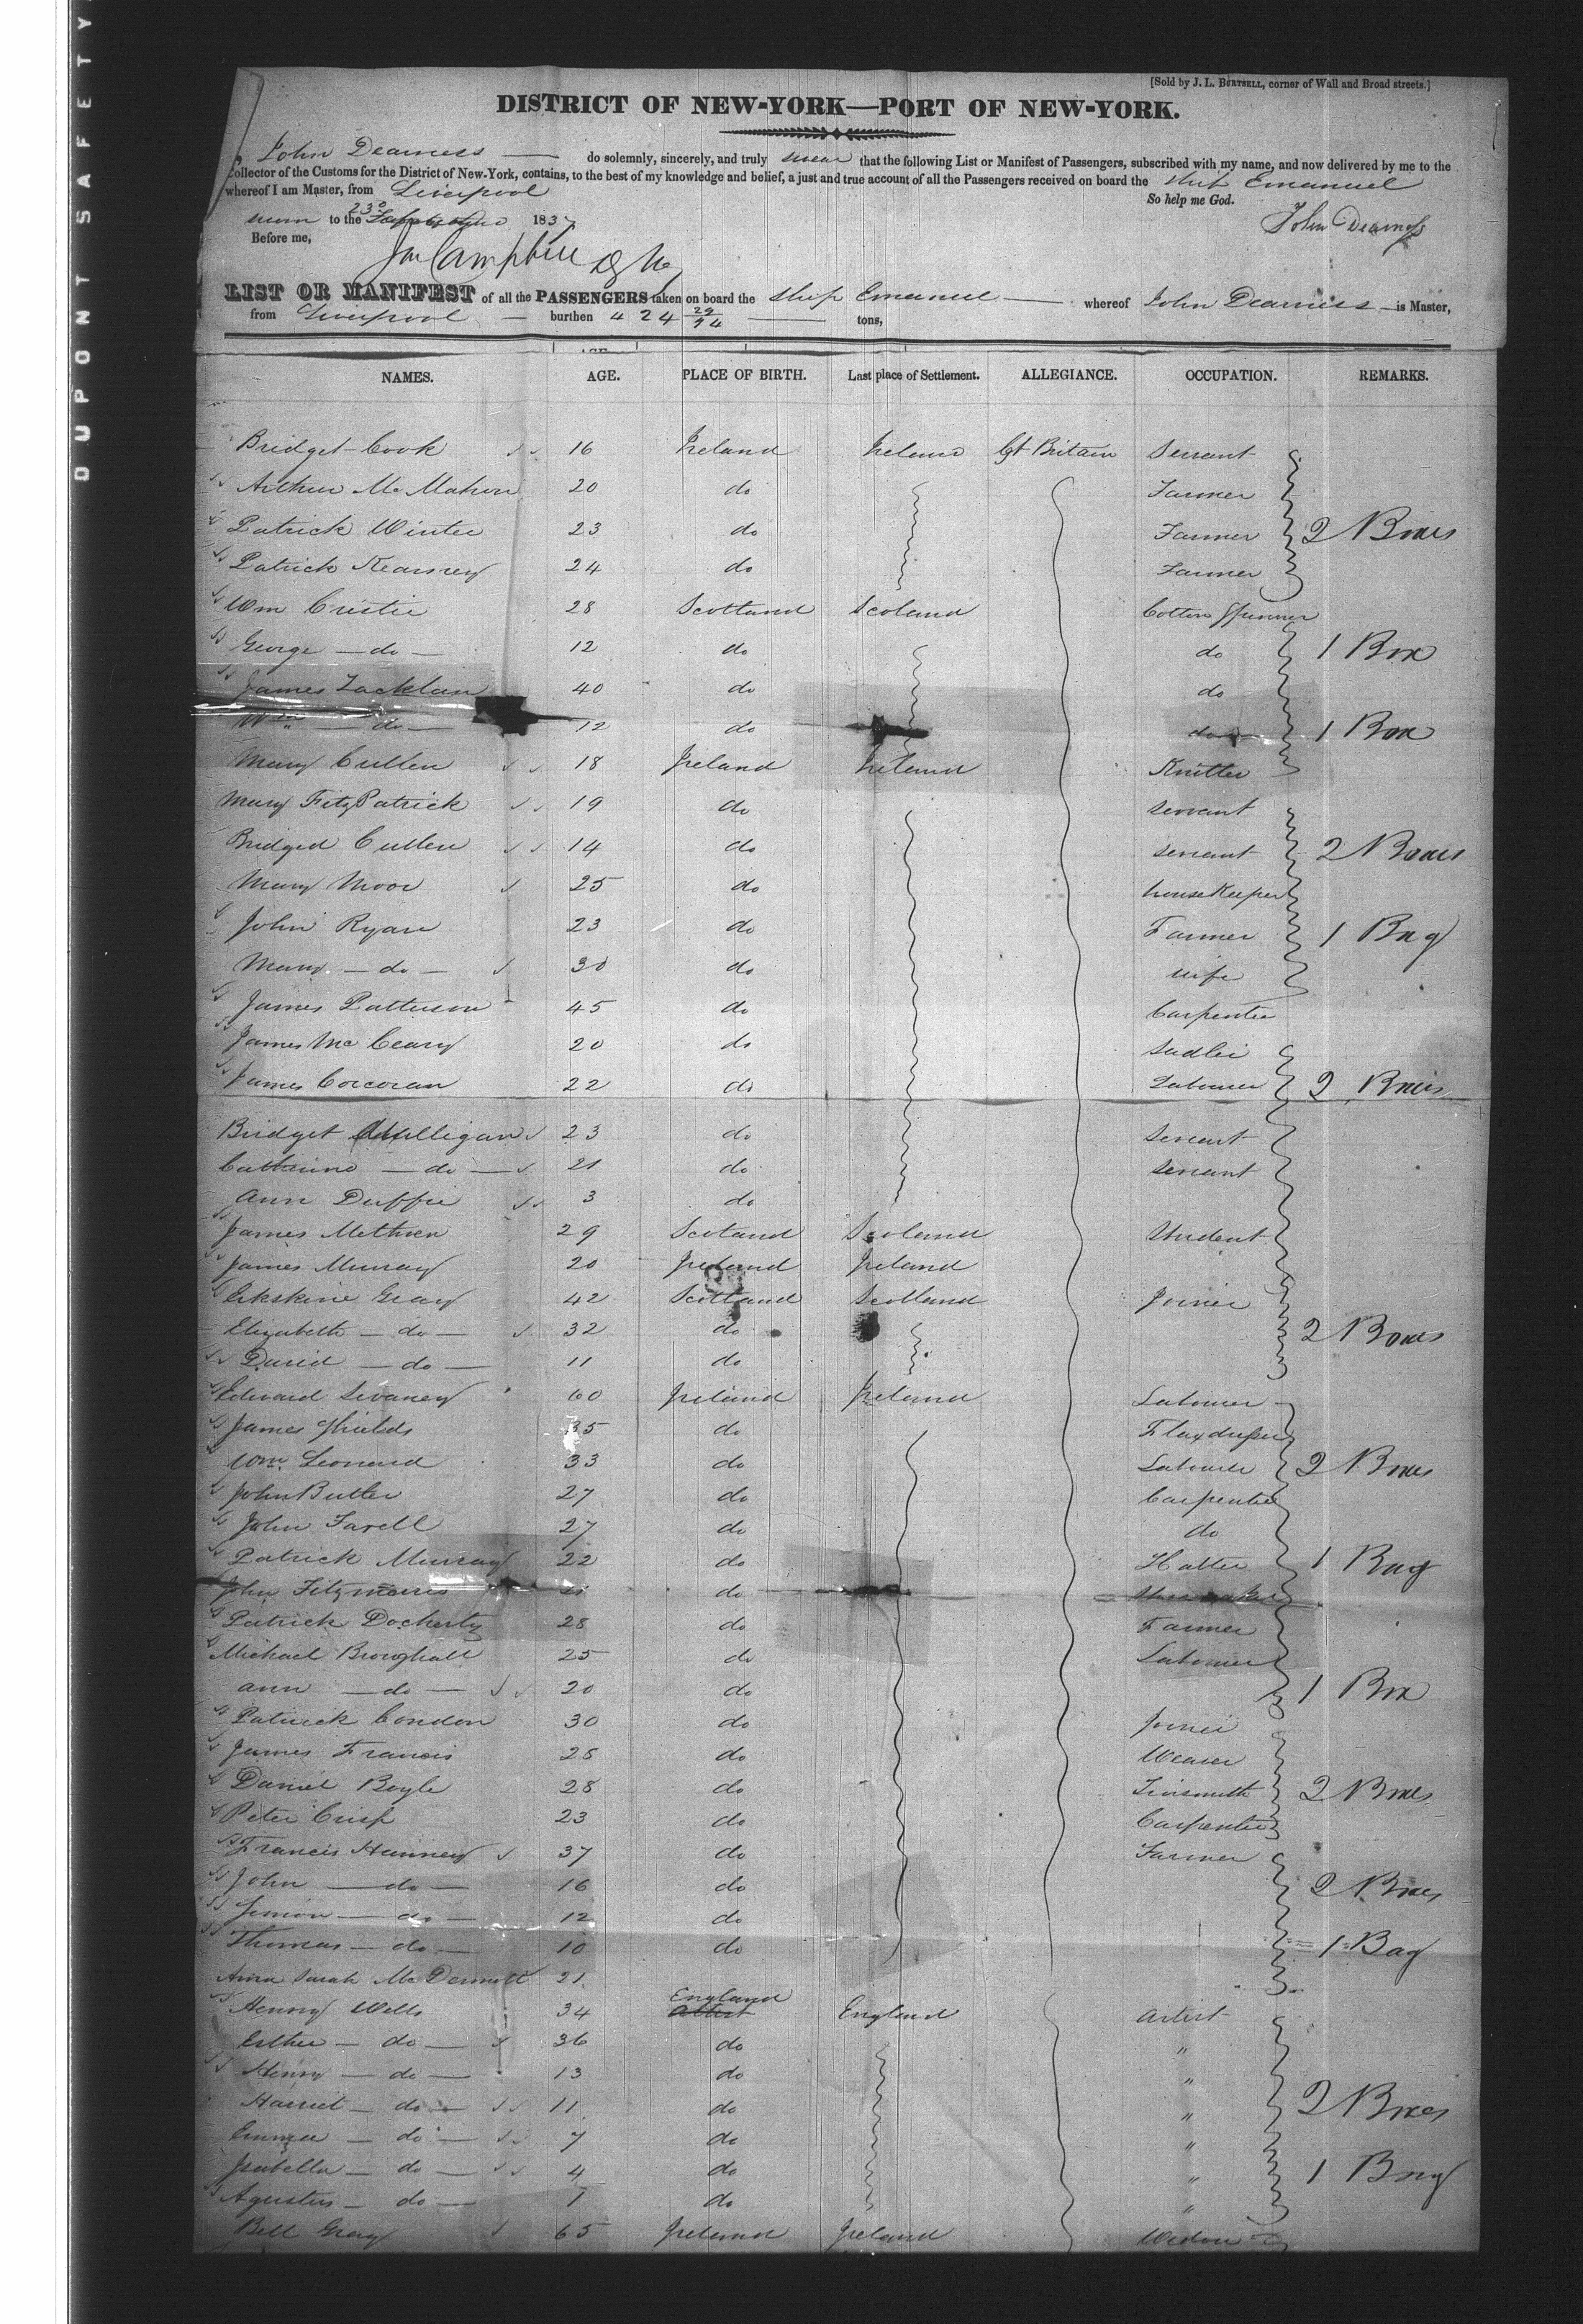 DUPONT SAFETY
[Sold by J. L. BURTSELL, corner of Wall and Broad streets.]
DISTRICT OF NEW-YORK—PORT OF NEW-YORK.
I, John Dearness do solemnly, sincerely, and truly swear that the following List or Manifest of Passengers, subscribed with my name, and now delivered by me to the
Collector of the Customs for the District of New-York, contains, to the best of my knowledge and belief, a just and true account of all the Passengers received on board the Ship Emanuel
whereof I am Master, from Liverpool So help me God.
Sworn to the 23d 1837 John Dearness
Before me,
Campbell
LIST OR MANIFEST of all the PASSENGERS taken on board the Ship Emanuel whereof John Dearness is Master,
from Liverpool burthen 424 29/94 tons,
NAMES. AGE. PLACE OF BIRTH. Last place of Settlement. ALLEGIANCE. OCCUPATION. REMARKS.
Bridget Cook 16 Ireland Ireland Gt Britain Servant
Arthur McMahon 20 do Farmer
Patrick Winter 23 do Farmer 2 Boxes
Patrick Kearney 24 do Farmer
Wm Cristie 28 Scotland Scoland Cotton Spinner
George do 12 do do 1 Box
James Lacklan 40 do do
Wm do 12 do do 1 Box
Mary Cullen 18 Ireland Ireland Knitter
Mary FitzPatrick 19 do Servant
Bridged Cullen 14 do Servant 2 Boxes
Mary Moor 25 do houseKeeper
John Ryan 23 do Farmer 1 Bag
Mary do 30 do Wife
James Patterson 45 do Carpenter
James McCeary 20 do Sadler
James Corcoran 22 do Labourer 2 Boxes
Bridget Milligan 23 do Servant
Catherine do 21 do Servant
Ann Duffie 3 do
James Methven 29 Scotand Scoland Student
James Murray 20 Ireland Ireland
Erkskine Gray 42 Scotland Scotland Joiner
Elizabeth do 32 do 2 Boxes
David do 11 do
Edward Sivaney 60 Ireland Ireland Labourer
James Shields 35 do Flaxdresser
Wm Leonard 33 do Labourer 2 Boxes
John Butler 27 do Carpenter
John Farell 27 do do
Patrick Murray 22 do Hatter 1 Bag
John Fitzmorris do Shoemaker
Patrick Docherty 28 do Farmer
Michael Broughall 25 do Labourer
Ann do 20 do 1 Box
Patrick Condon 30 do Joiner
James Francis 28 do Weaver
Daniel Boyle 28 do Tinsmith 2 Boxes
Peter Crisp 23 do Carpenter
Francis Hanney 37 do Farmer
John do 16 do 2 Boxes
Simon do 12 do
Thomas do 10 do 1 Bag
Anna Sarah McDermott 21
Henry Wells 34 England England Artist
Esther do 36 do "
Henry do 13 do "
Harriet do 11 do " 2 Boxes
Emma do 7 do "
Isabella do 4 do " 1 Bag
Agustus do 1 do "
Bell Gray 65 Ireland Ireland Widow